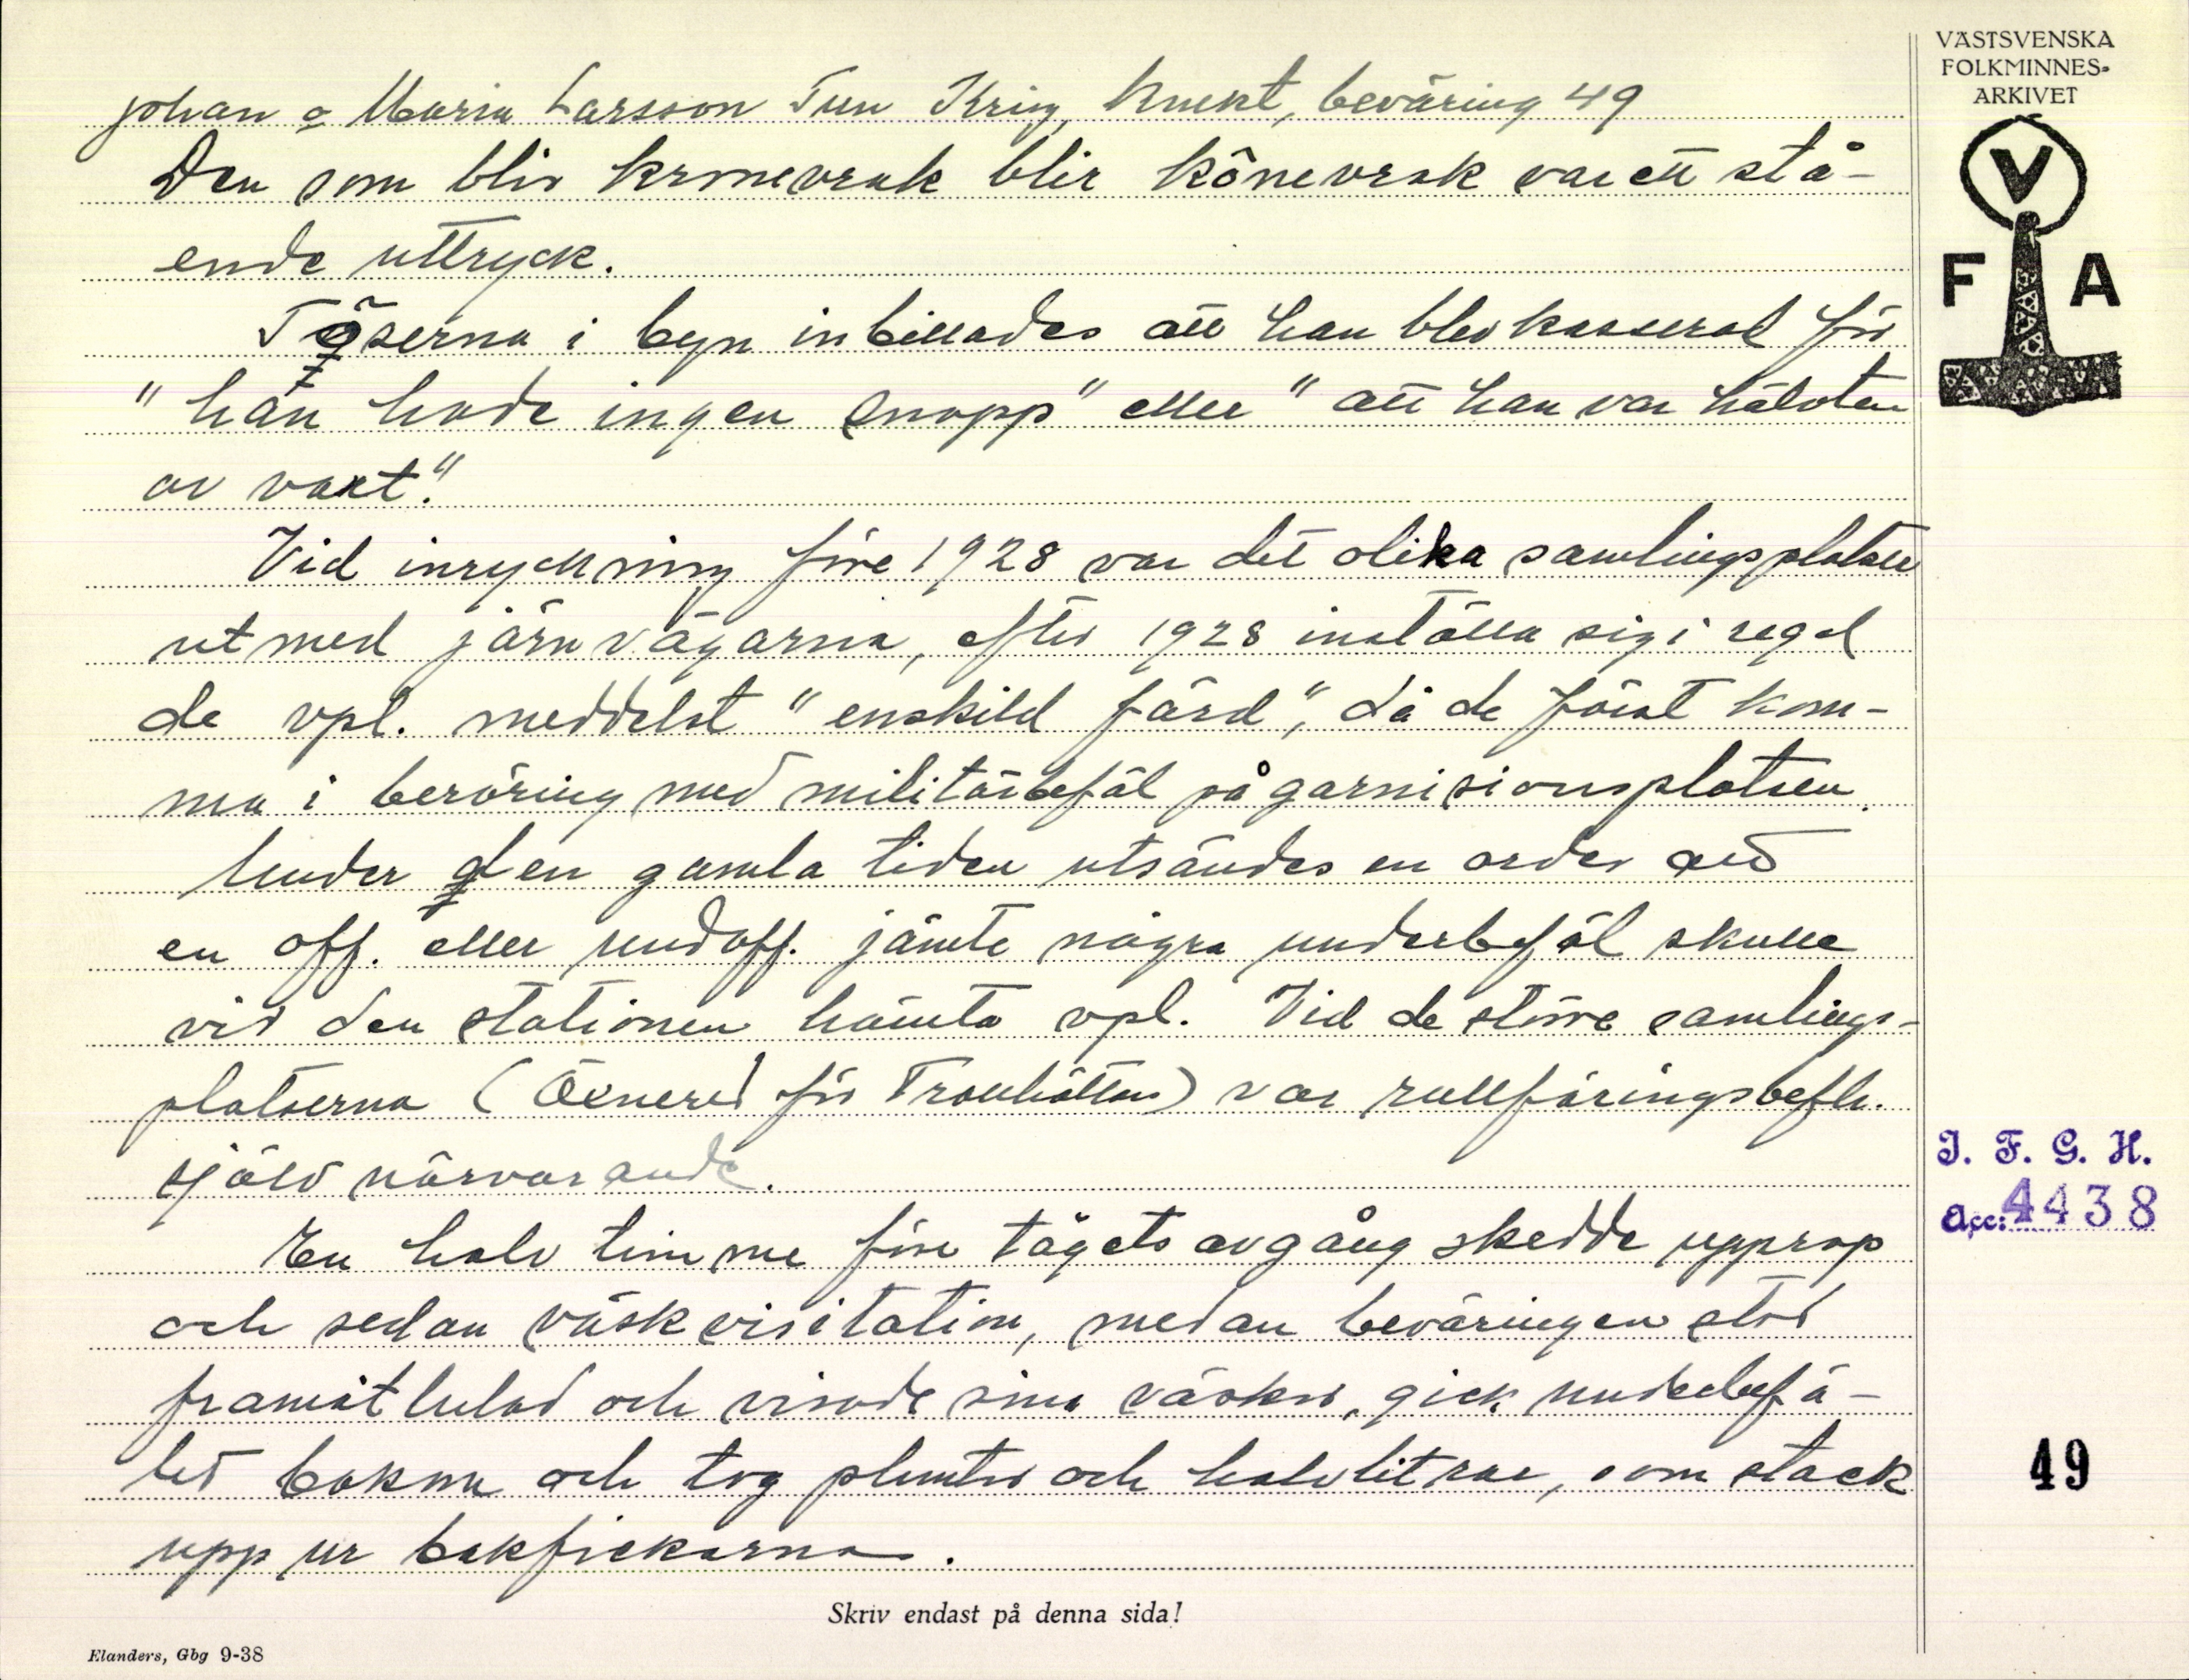 Johan o Maria Larsson Tun Krig, Knekt, beväring 49
Den som blir kronevrak blir könevrak var ett stå-
ende uttryck.
Töserna i byn inbillades att han blev kasserad för
"han hade ingen snopp" eller "att han var hälvten
av vart."
Vid inryckning före 1928 var det olika samlingsplatser
utmed järnvägarna, efter 1928 inställa sig i regel
de vpl. meddelst "enskild färd", då de först kom-
ma i beröring med militärbefäl på garnisionsplatsen.
Under den gamla tiden utsändes en order att
en off. eller undoff. jämte några underbefäl skulle
vid den stationen hämta vpl. Vid de större samlings-
platserna (Öxnered för Trollhättan) var rullföringsbefh.
själv närvarande.
En halv timme före tågets avgång skedde upprop
och sedan väskvisitation, medan beväringen stod
framåtlutad och visade sina väskor, gick underbefä-
let bakom och tog pluntor och halvlitrar, som stack
upp ur bakfickorna.
Skriv endast på denna sida!
Elanders, Gbg 9-38
VÄSTSVENSKA
FOLKMINNES-
ARKIVET
V
F A
I. F. G. H.
Acc: 4438
49